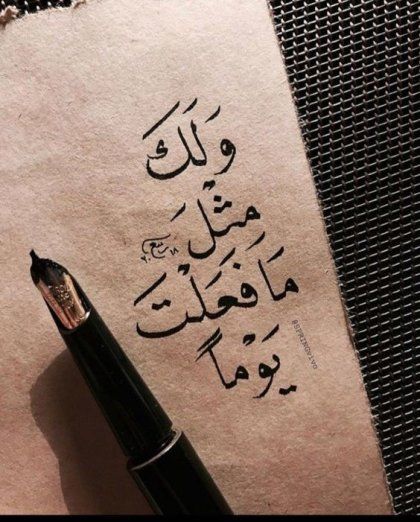 وَلَكَ
مِثْلَ
مَا فَعَلْتَ
يَوْماً